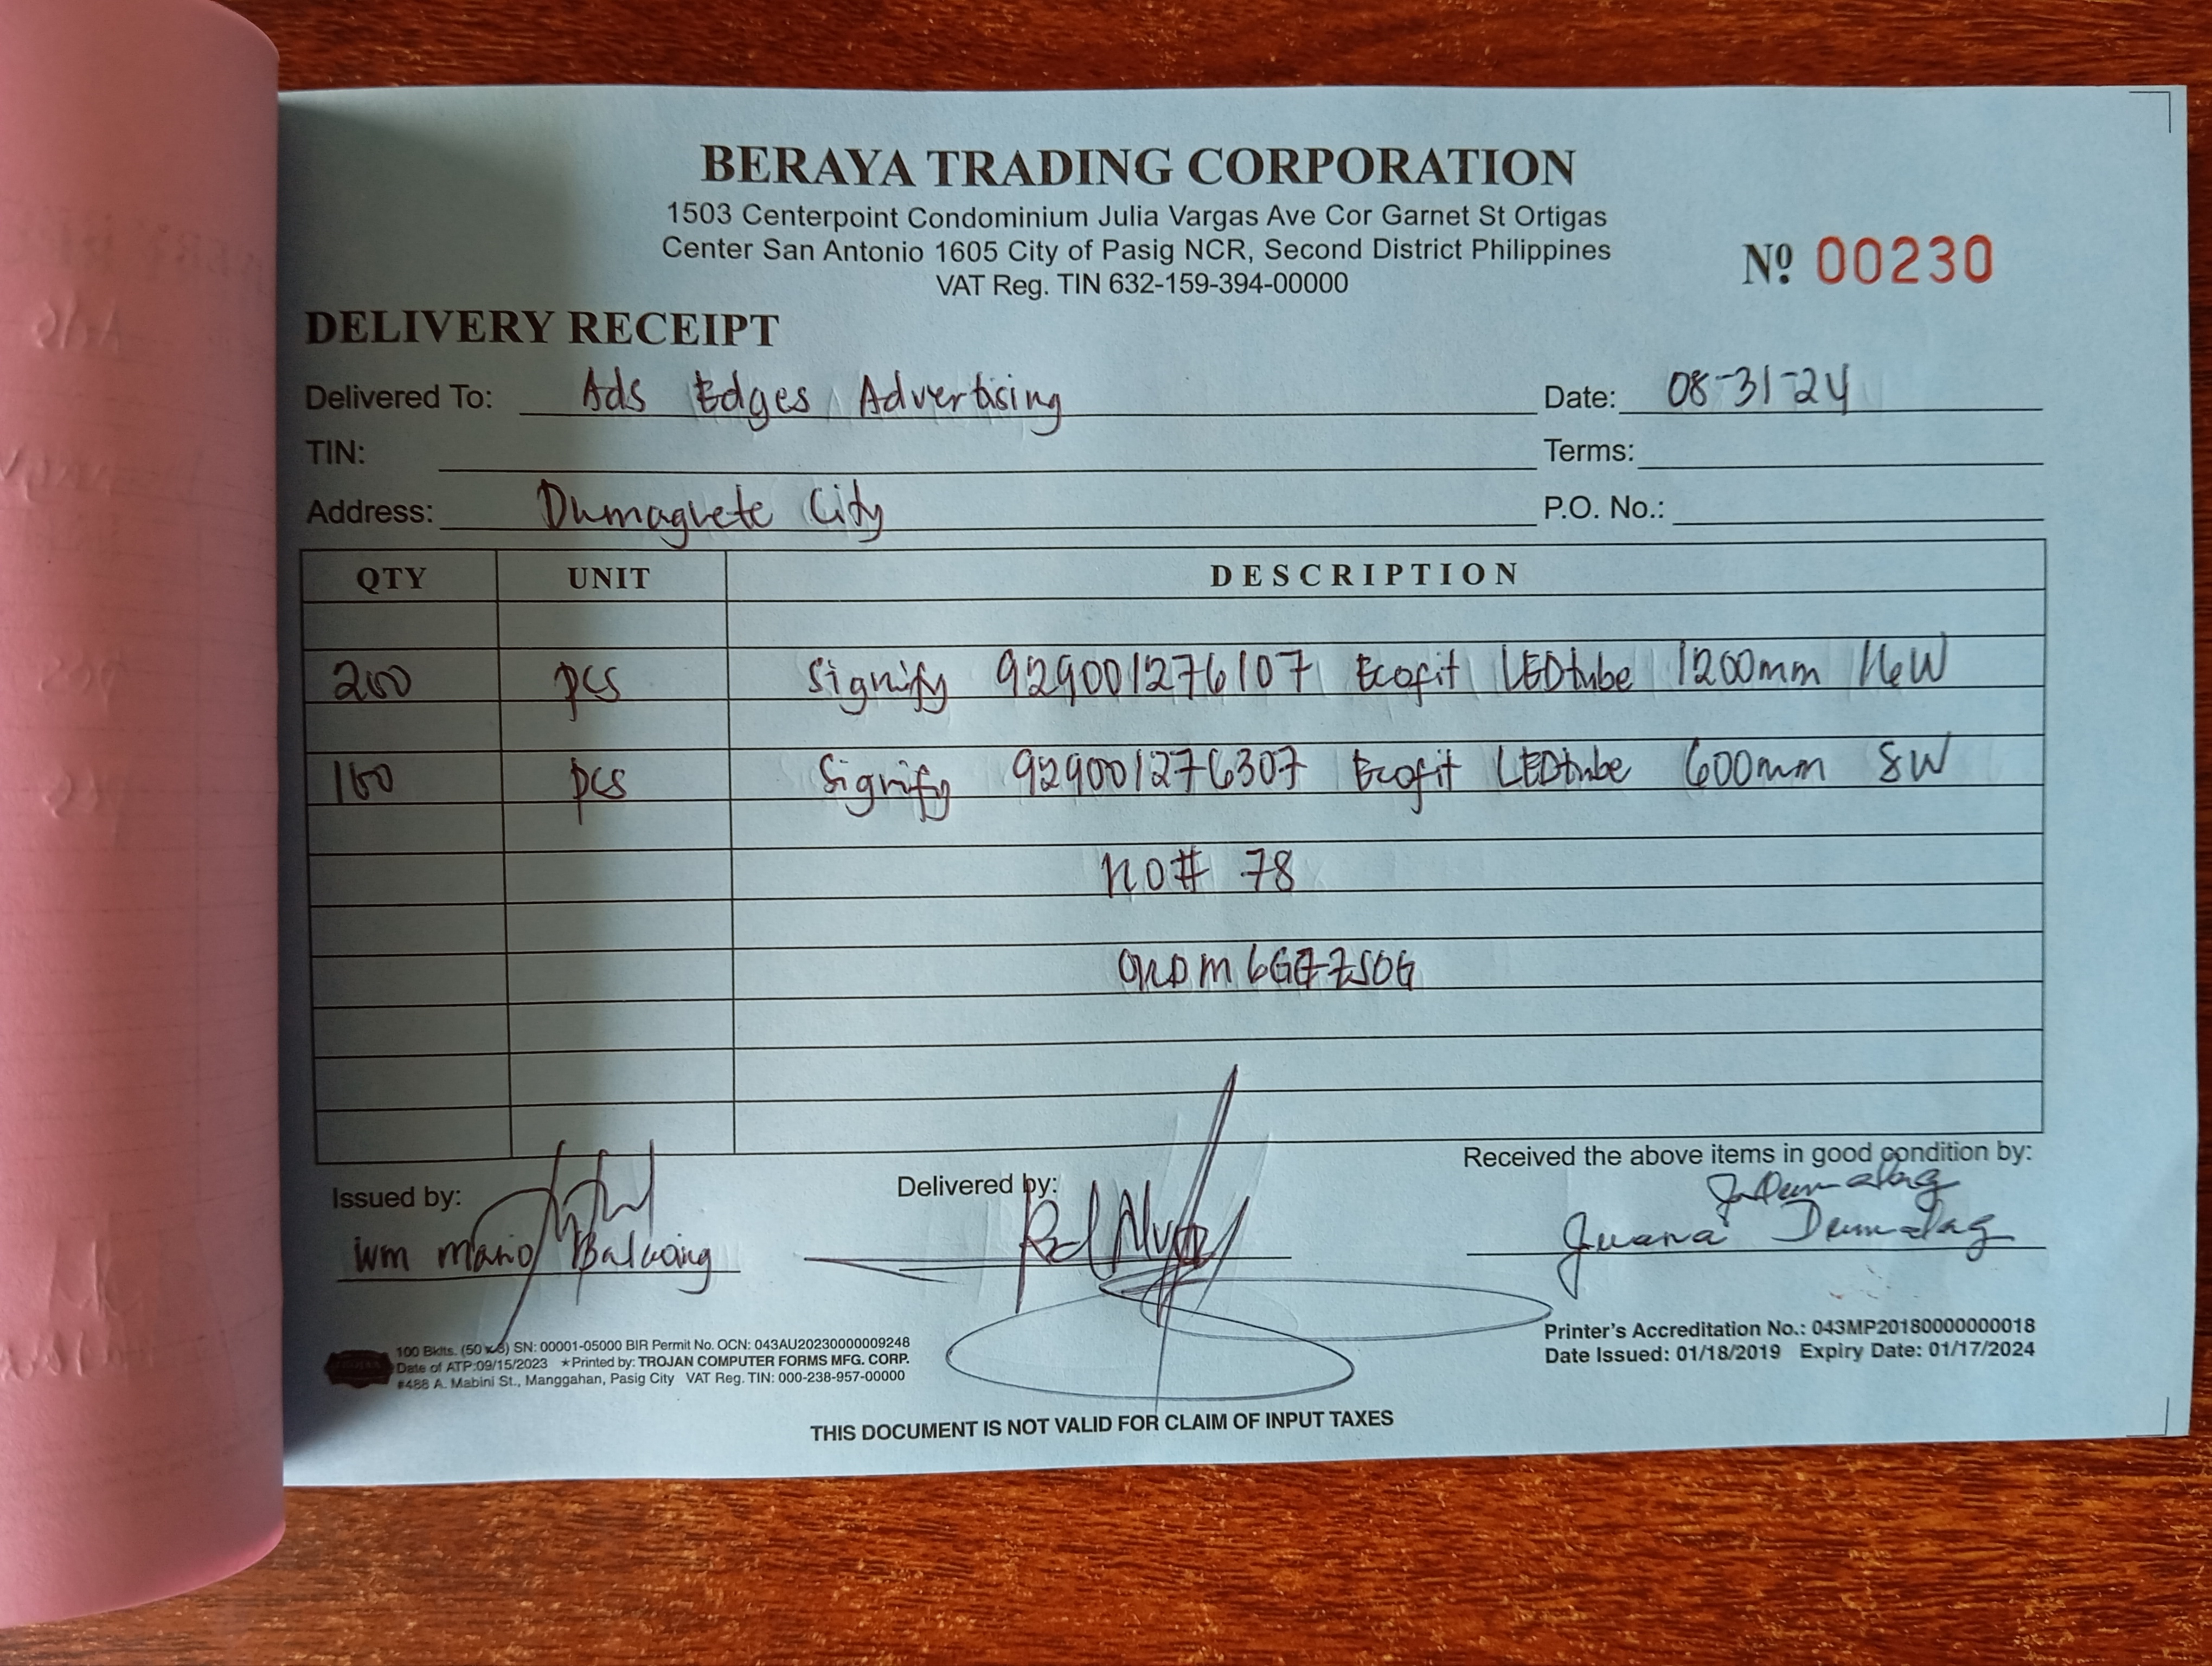 BERAYA TRADING CORPORATION
1503 Centerpoint Condominium Julia Vargas Ave Cor Garnet St Ortigas
Center San Antonio 1605 City of Pasig NCR, Second District Philippines
VAT Reg. TIN 632-159-394-00000
Nº 00230
DELIVERY RECEIPT
Delivered To: Ads Edges Advertising Date: 08-31-24
TIN: Terms:
Address: Dumaguete City P.O. No.:
QTY UNIT DESCRIPTION
200 pcs Signify 929001276107 Ecofit LEDtube 1200mm 16W
100 pcs Signify 929001276307 Ecofit LEDtube 600mm 8W
no# 78
Received the above items in good condition by:
Issued by: Delivered by:
Juana Dumalag
100 Bklts. (50 x 3) SN: 00001-05000 BIR Permit No. OCN: 043AU20230000009248
Date of ATP:09/15/2023 ★Printed by: TROJAN COMPUTER FORMS MFG. CORP.
#488 A. Mabini St., Manggahan, Pasig City VAT Reg. TIN: 000-238-957-00000
Printer's Accreditation No.: 043MP20180000000018
Date Issued: 01/18/2019 Expiry Date: 01/17/2024
THIS DOCUMENT IS NOT VALID FOR CLAIM OF INPUT TAXES